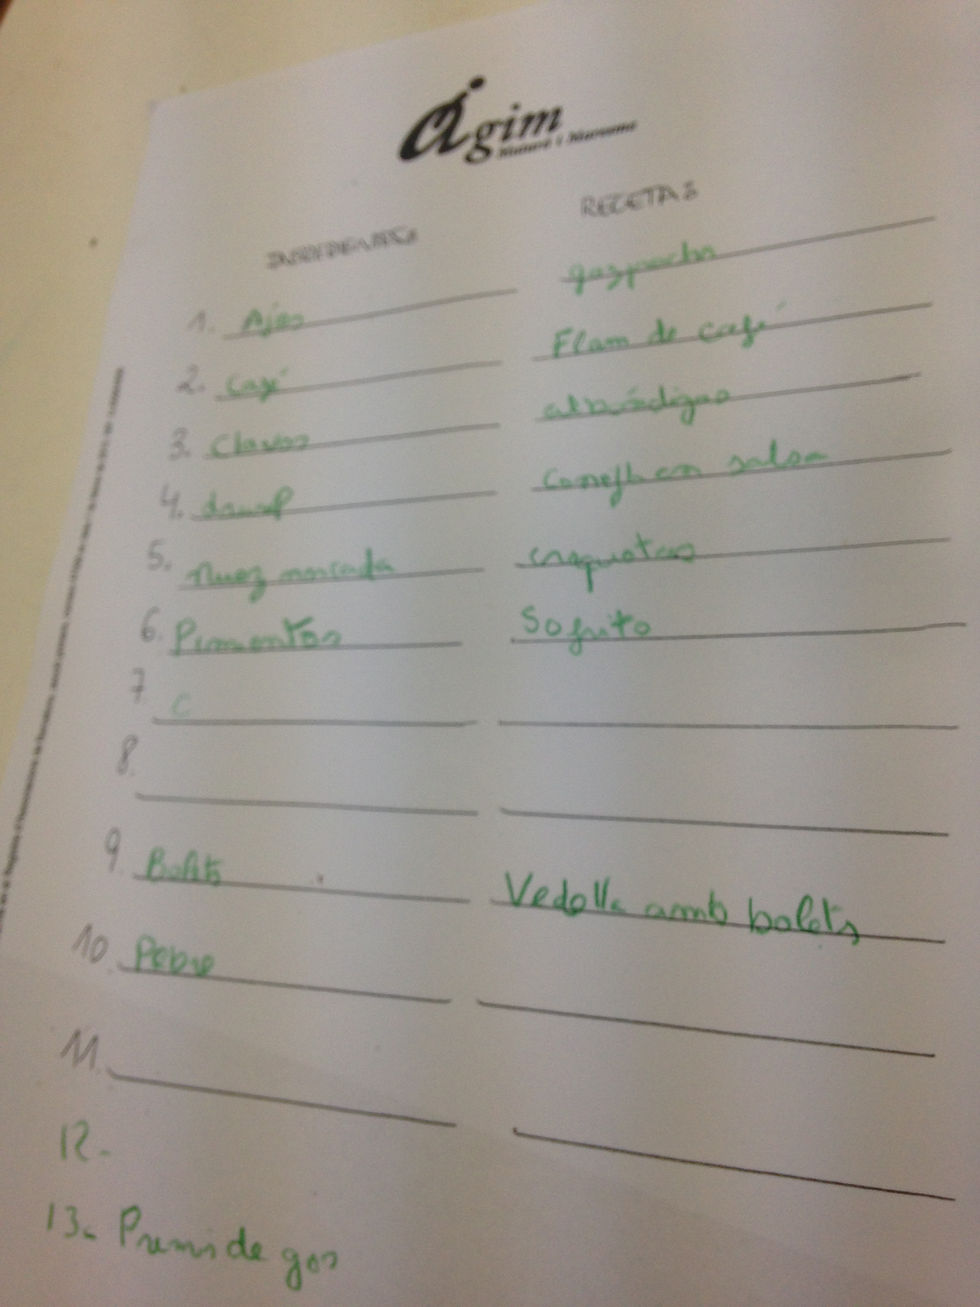 Àgim
Mataró i Maresme
INGREDIENTES RECETAS
1. Ajos gazpacho
2. Café Flam de café
3. Clavos albóndigas
4. Conejo con salsa
5. Nuez moscada croquetas
6. Pimentos Sofrito
7 C
8.
9. Bolets Vedella amb bolets
10. Pebre
11.
12-
13. Premi de gos